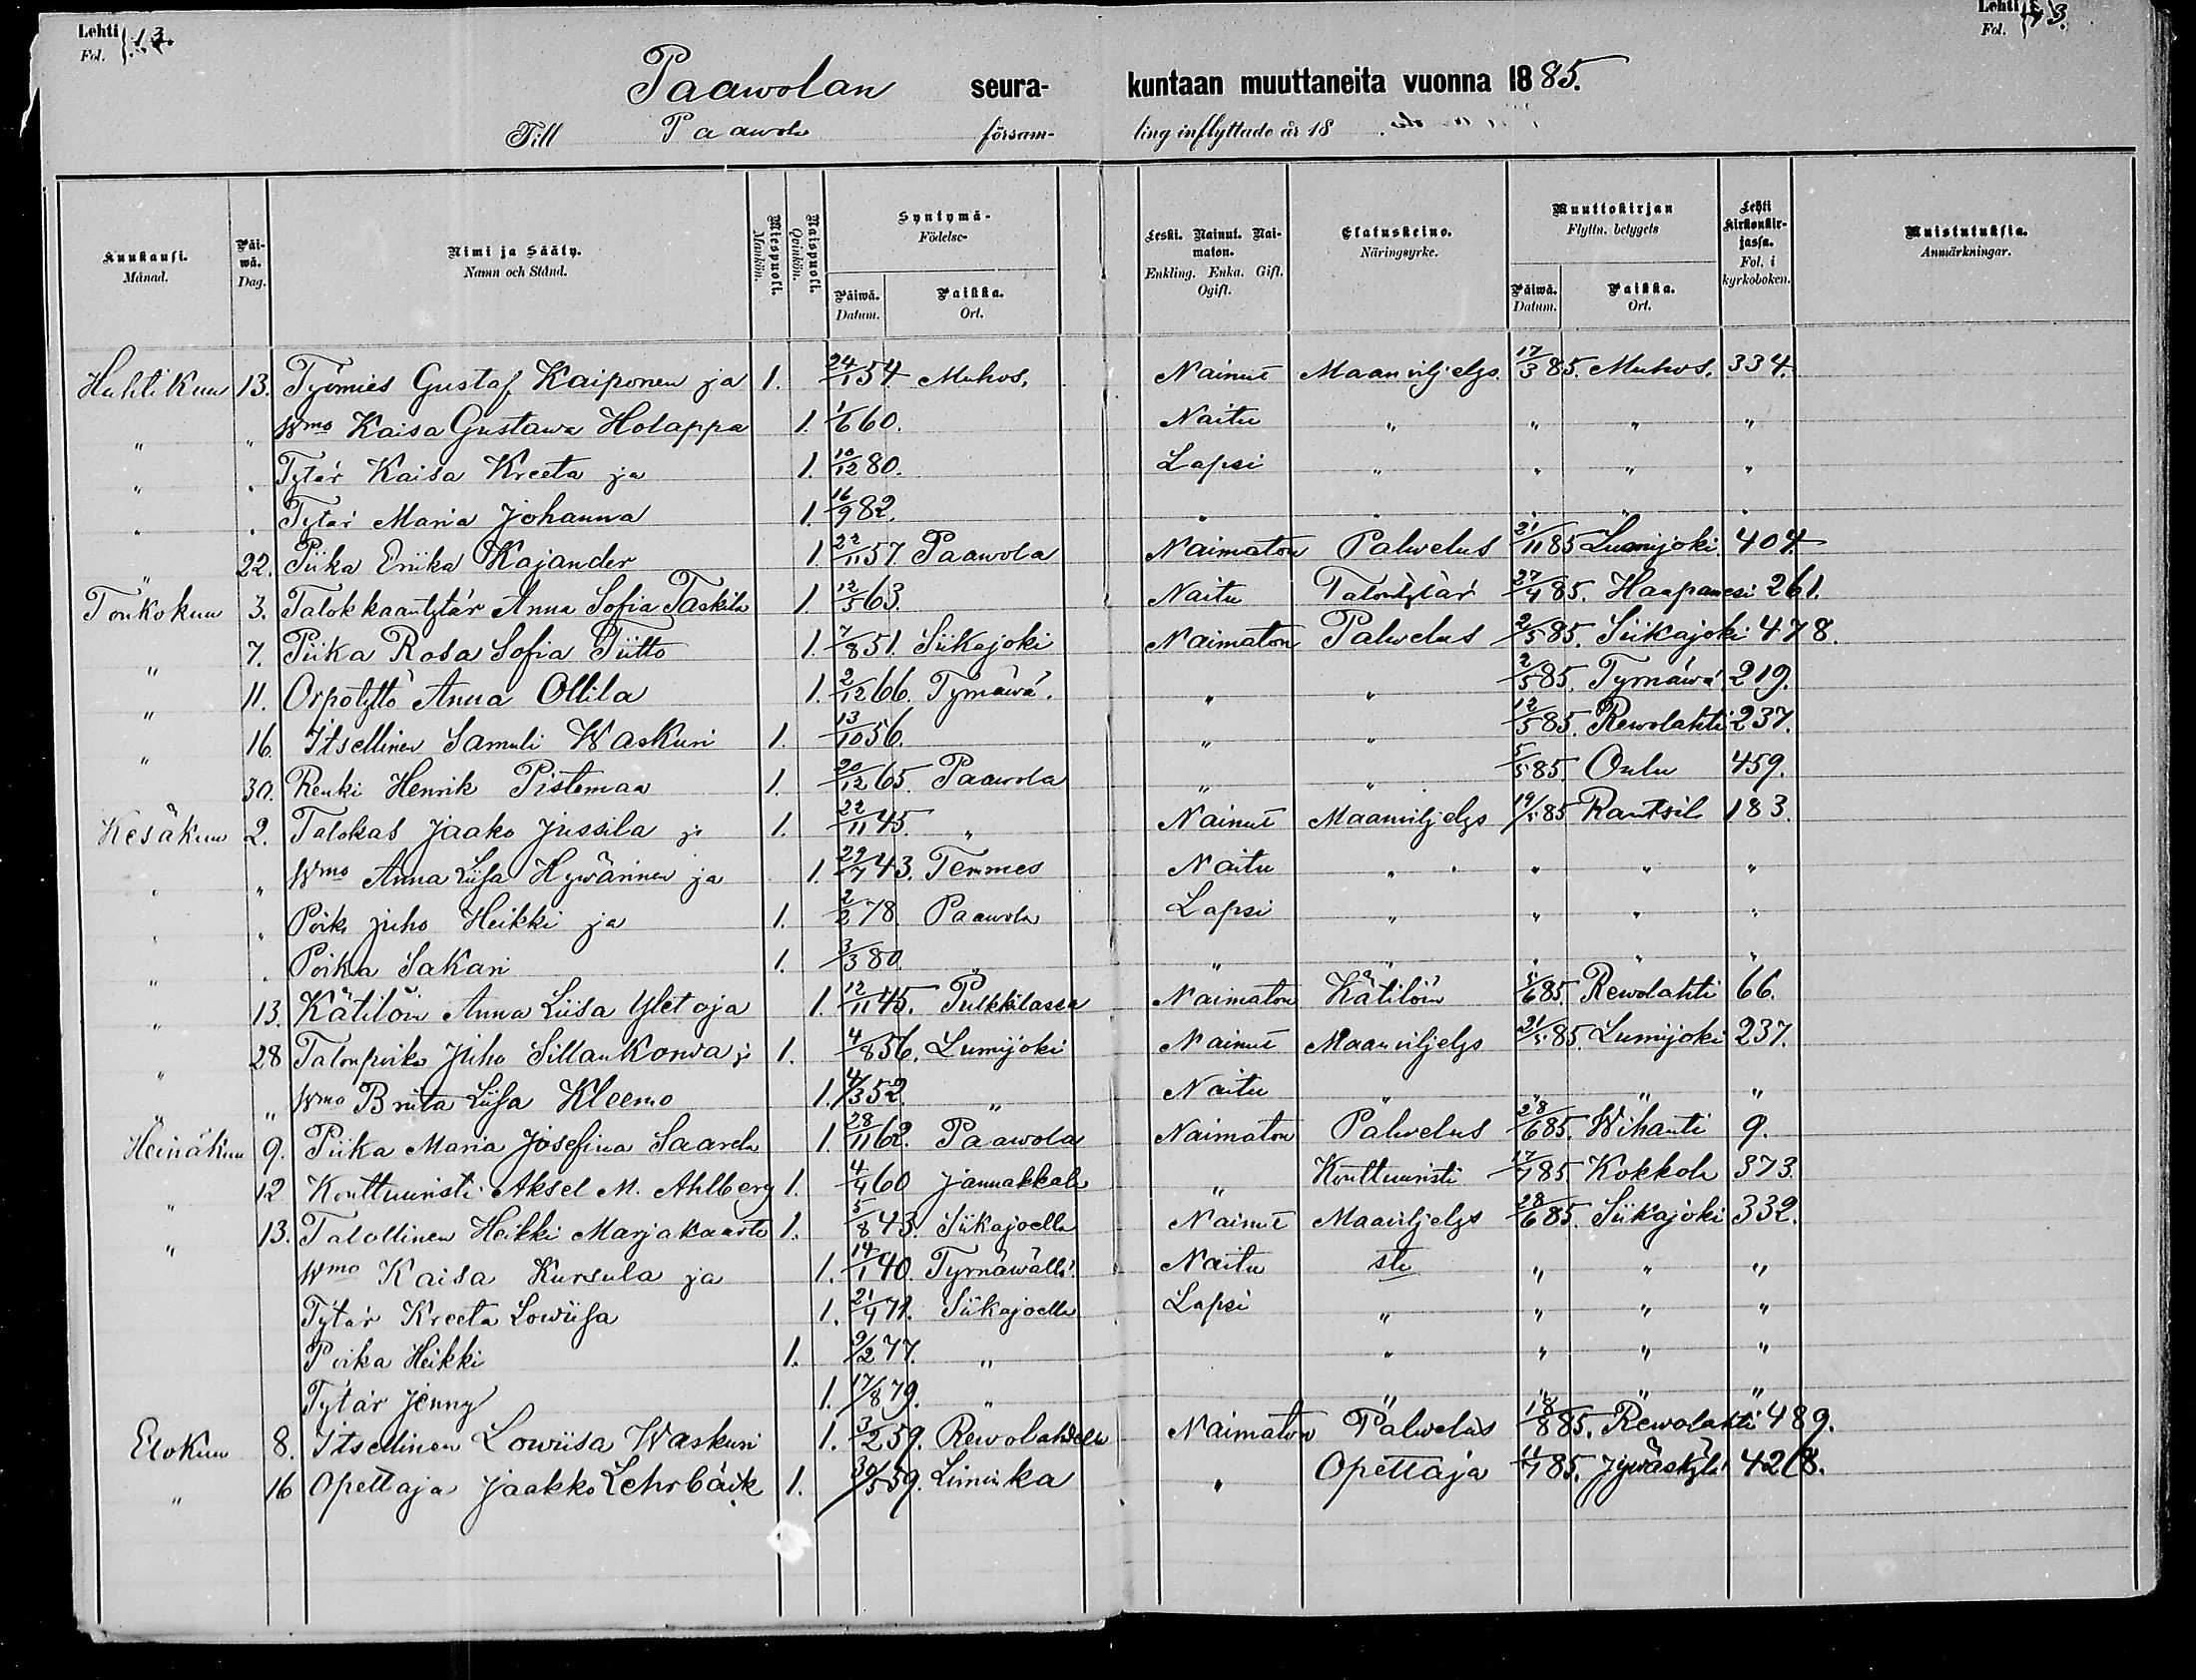 Lehti 13.
Fol.
Lehti 13.
Fol.
Paawolan seura- kuntaan muuttaneita vuonna 1885.
Till Paawola försam- ling inflyttade år 18
Kuukausi. Månad. Päiwä. Dag. Nimi ja Sääty. Namn och Stånd. Miespuoli. Mankön. Waispuoli. Qvinkön. Syntymä- Födelse- Päiwä. Datum. Paikka. Ort. Leski. Nainut. Naimaton. Enkling. Enka. Gift. Ogift. Elatuskeino. Näringsyrke. Muuttokirjan Flyttn. betygets Päiwä. Datum. Paikka. Ort. Lehti kirkonkirjassa. Fol. i kyrkoboken. Muistutuksia. Anmärkningar.
Huhtikuu 13. Työmies Gustaf Kaiponen ja 1. 24/1 54 Muhos. Nainut Maanviljelys. 17/3 85. Muhos. 334.
" " Wmo Kaisa Gustawa Holappa 1. 1/6 60. Naitu " " " "
" " Tytär Kaisa Kreeta ja 1. 10/12 80. Lapsi " " " "
" " Tytär Maria Johanna 1. 16/9 82. " " " " "
" 22. Piika Eriika Kajander 1. 22/11 57. Paawola Naimaton Palwelus 21/11 85 Lumijoki 404.
Toukokuu 3. Talokkaantytär Anna Sofia Taskila 1. 12/5 63. Naitu Talontytär 27/4 85. Haapawesi 261.
" 7. Piika Rosa Sofia Tiitto 1. 7/8 51. Siikajoki Naimaton Palwelus 2/5 85. Siikajoki 478.
" 11. Orpotyttö Anna Ollila 1. 2/12 66. Tyrnäwä. " " 2/5 85. Tyrnäwä 219.
" 16. Itsellinen Samuli Waskuri 1. 13/10 56. " " 12/5 85. Rewolahti 237.
30. Renki Henrik Pistemaa 1. 20/12 65. Paawola " " 5/5 85. Oulu 459.
Kesäkuu 2. Talokas Jaako Jussila ja 1. 22/11 45. " Nainut Maanviljelys 19/5 85 Rantsil 183.
" " Wmo Anna Liisa Hywärinen ja 1. 29/7 43. Temmes Naitu " " " "
" " Poik. Juho Heikki ja 1. 2/2 78. Paawola Lapsi " " " "
" " Poika Sakari 1. 3/3 80 " " " " " "
" 13. Kätilön Anna Liisa Yletoja 1. 12/11 45. Pulkkilassa Naimaton Kätilön 5/6 85. Rewolahti 66.
" 28 Talonpoika Juho Sillankorwa ja 1. 4/8 56. Lumijoki Nainut Maanviljelys 21/5 85. Lumijoki 237.
" " Wmo Briita Liisa Kleemo 1. 4/3 52. " Naitu " " " "
Heinäkuu 9. Piika Maria Josefina Saarela 1. 28/11 62. Paawola Naimaton Palwelus 28/6 85. Wihanti 9.
" 12 Konttuuristi Aksel M. Ahlberg 1. 4/4 60 Jannakkala " Konttuuristi 17/7 85. Kokkola 373.
" 13. Talollinen Heikki Marjakaarto 1. 5/8 43. Siikajoella Nainut Maaviljelys 28/6 85. Siikajoki 332.
Wmo Kaisa Kursula ja 1. 14/1 40. Tyrnäwällä Naitu " " "
Tytär Kreeta Lowiisa 1. 21/4 71. Siikajoella Lapsi " " " "
Poika Heikki 1. 9/2 77. " " " " "
Tytär Jenny 1. 17/8 79. " " " " "
Elokuu 8. Itsellinen Lowiisa Waskuri 1. 3/2 59. Rewolahdella Naimaton Palwelus 18/8 85. Rewolahti 489.
" 16 Opettaja Jaakko Lehrbäck 1. 30/5 59. Liminka " Opettaja 11/7 85. Jywäskylä 428.